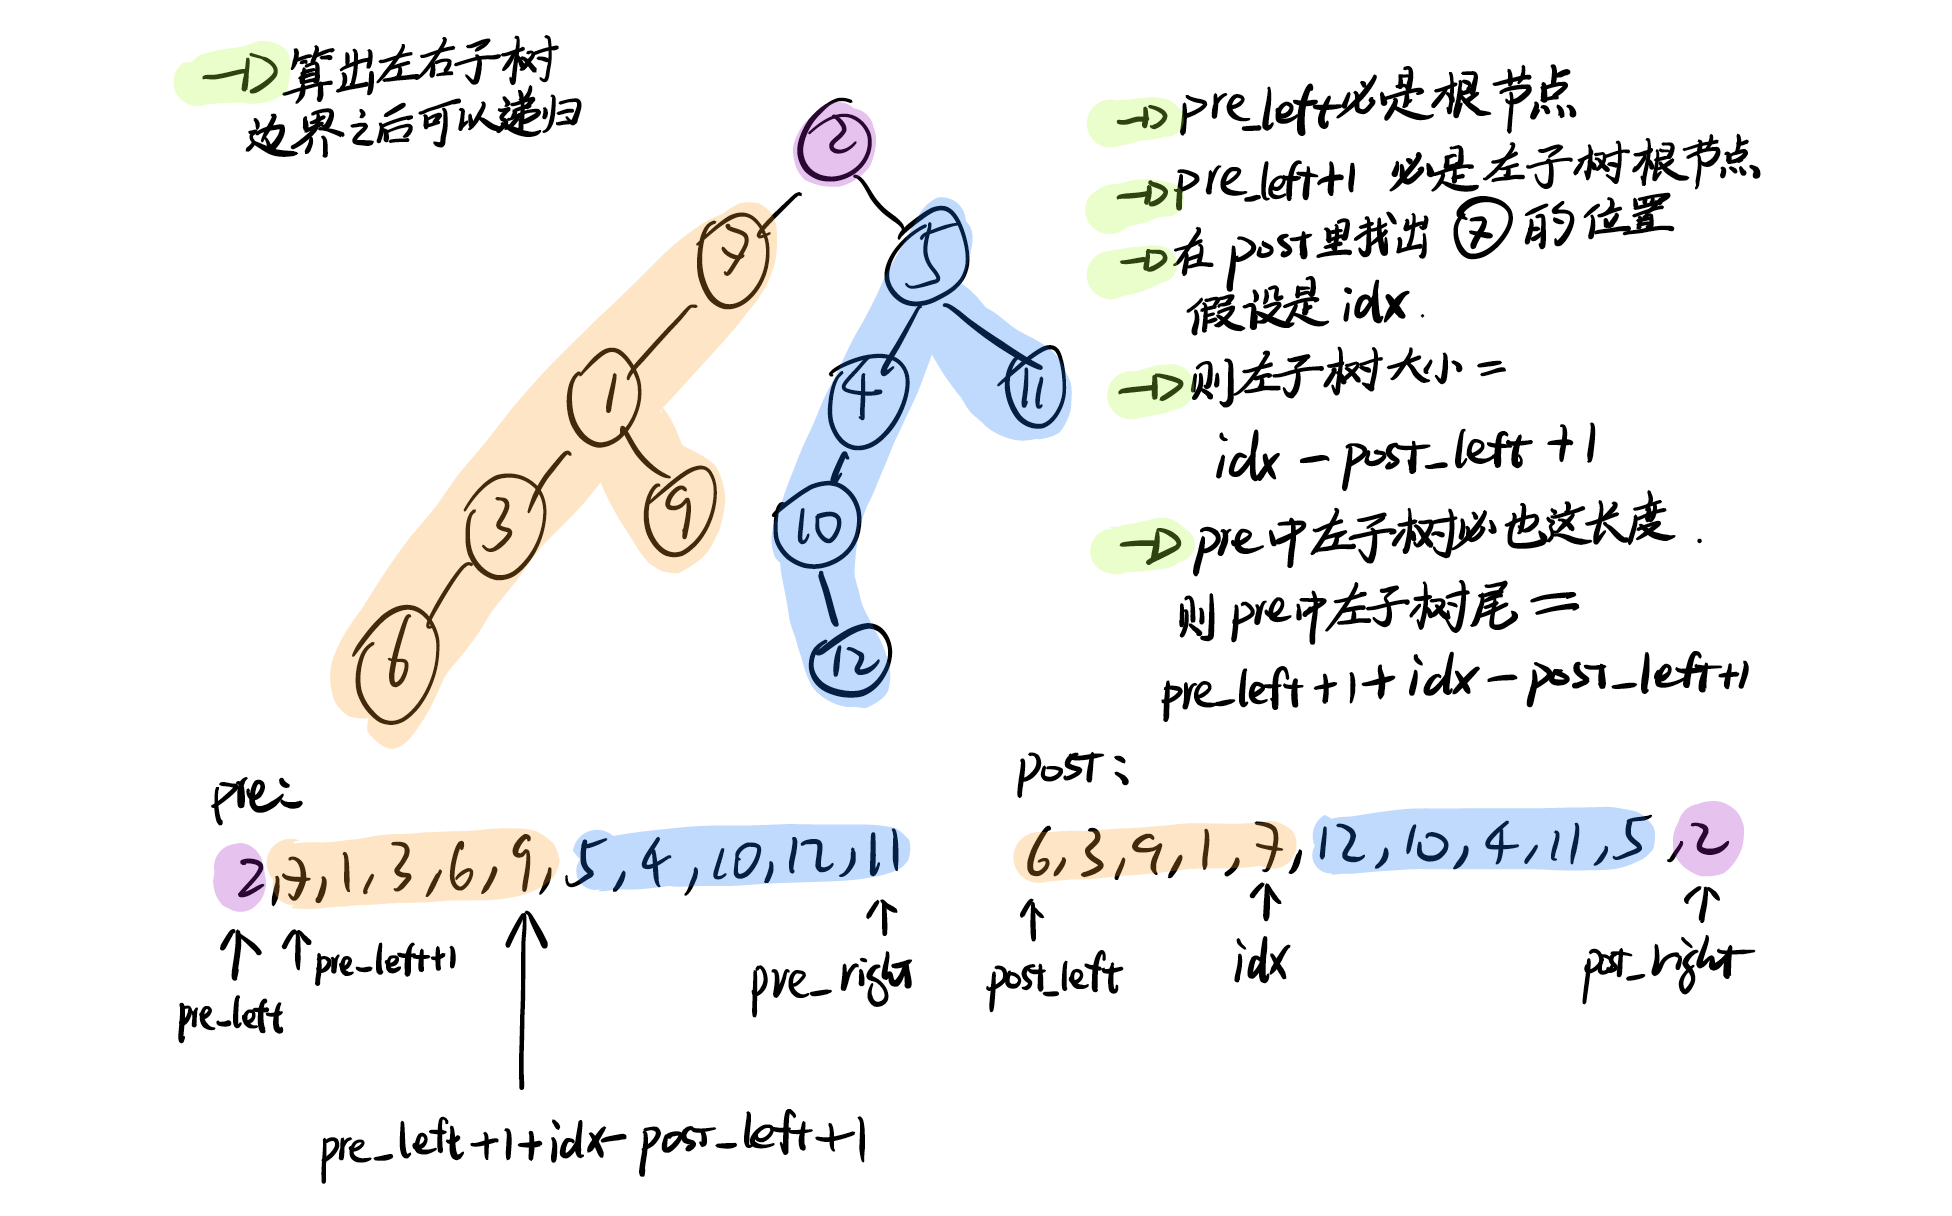 算出左右子树
边界之后可以递归
2
7
5
1
4
11
3
9
10
6
12
pre_left必是根节点
pre_left+1 必是左子树根节点
在post里找出 7 的位置
假设是idx.
则左子树大小=
idx - post_left +1
pre中左子树必也这长度.
则pre中左子树尾=
pre_left+1+idx-post_left+1
pre:
2,7,1,3,6,9,5,4,10,12,11
pre_left
pre_left+1
pre_right
pre_left+1+idx-post_left+1
post:
6,3,9,1,7,12,10,4,11,5,2
post_left
idx
post_right